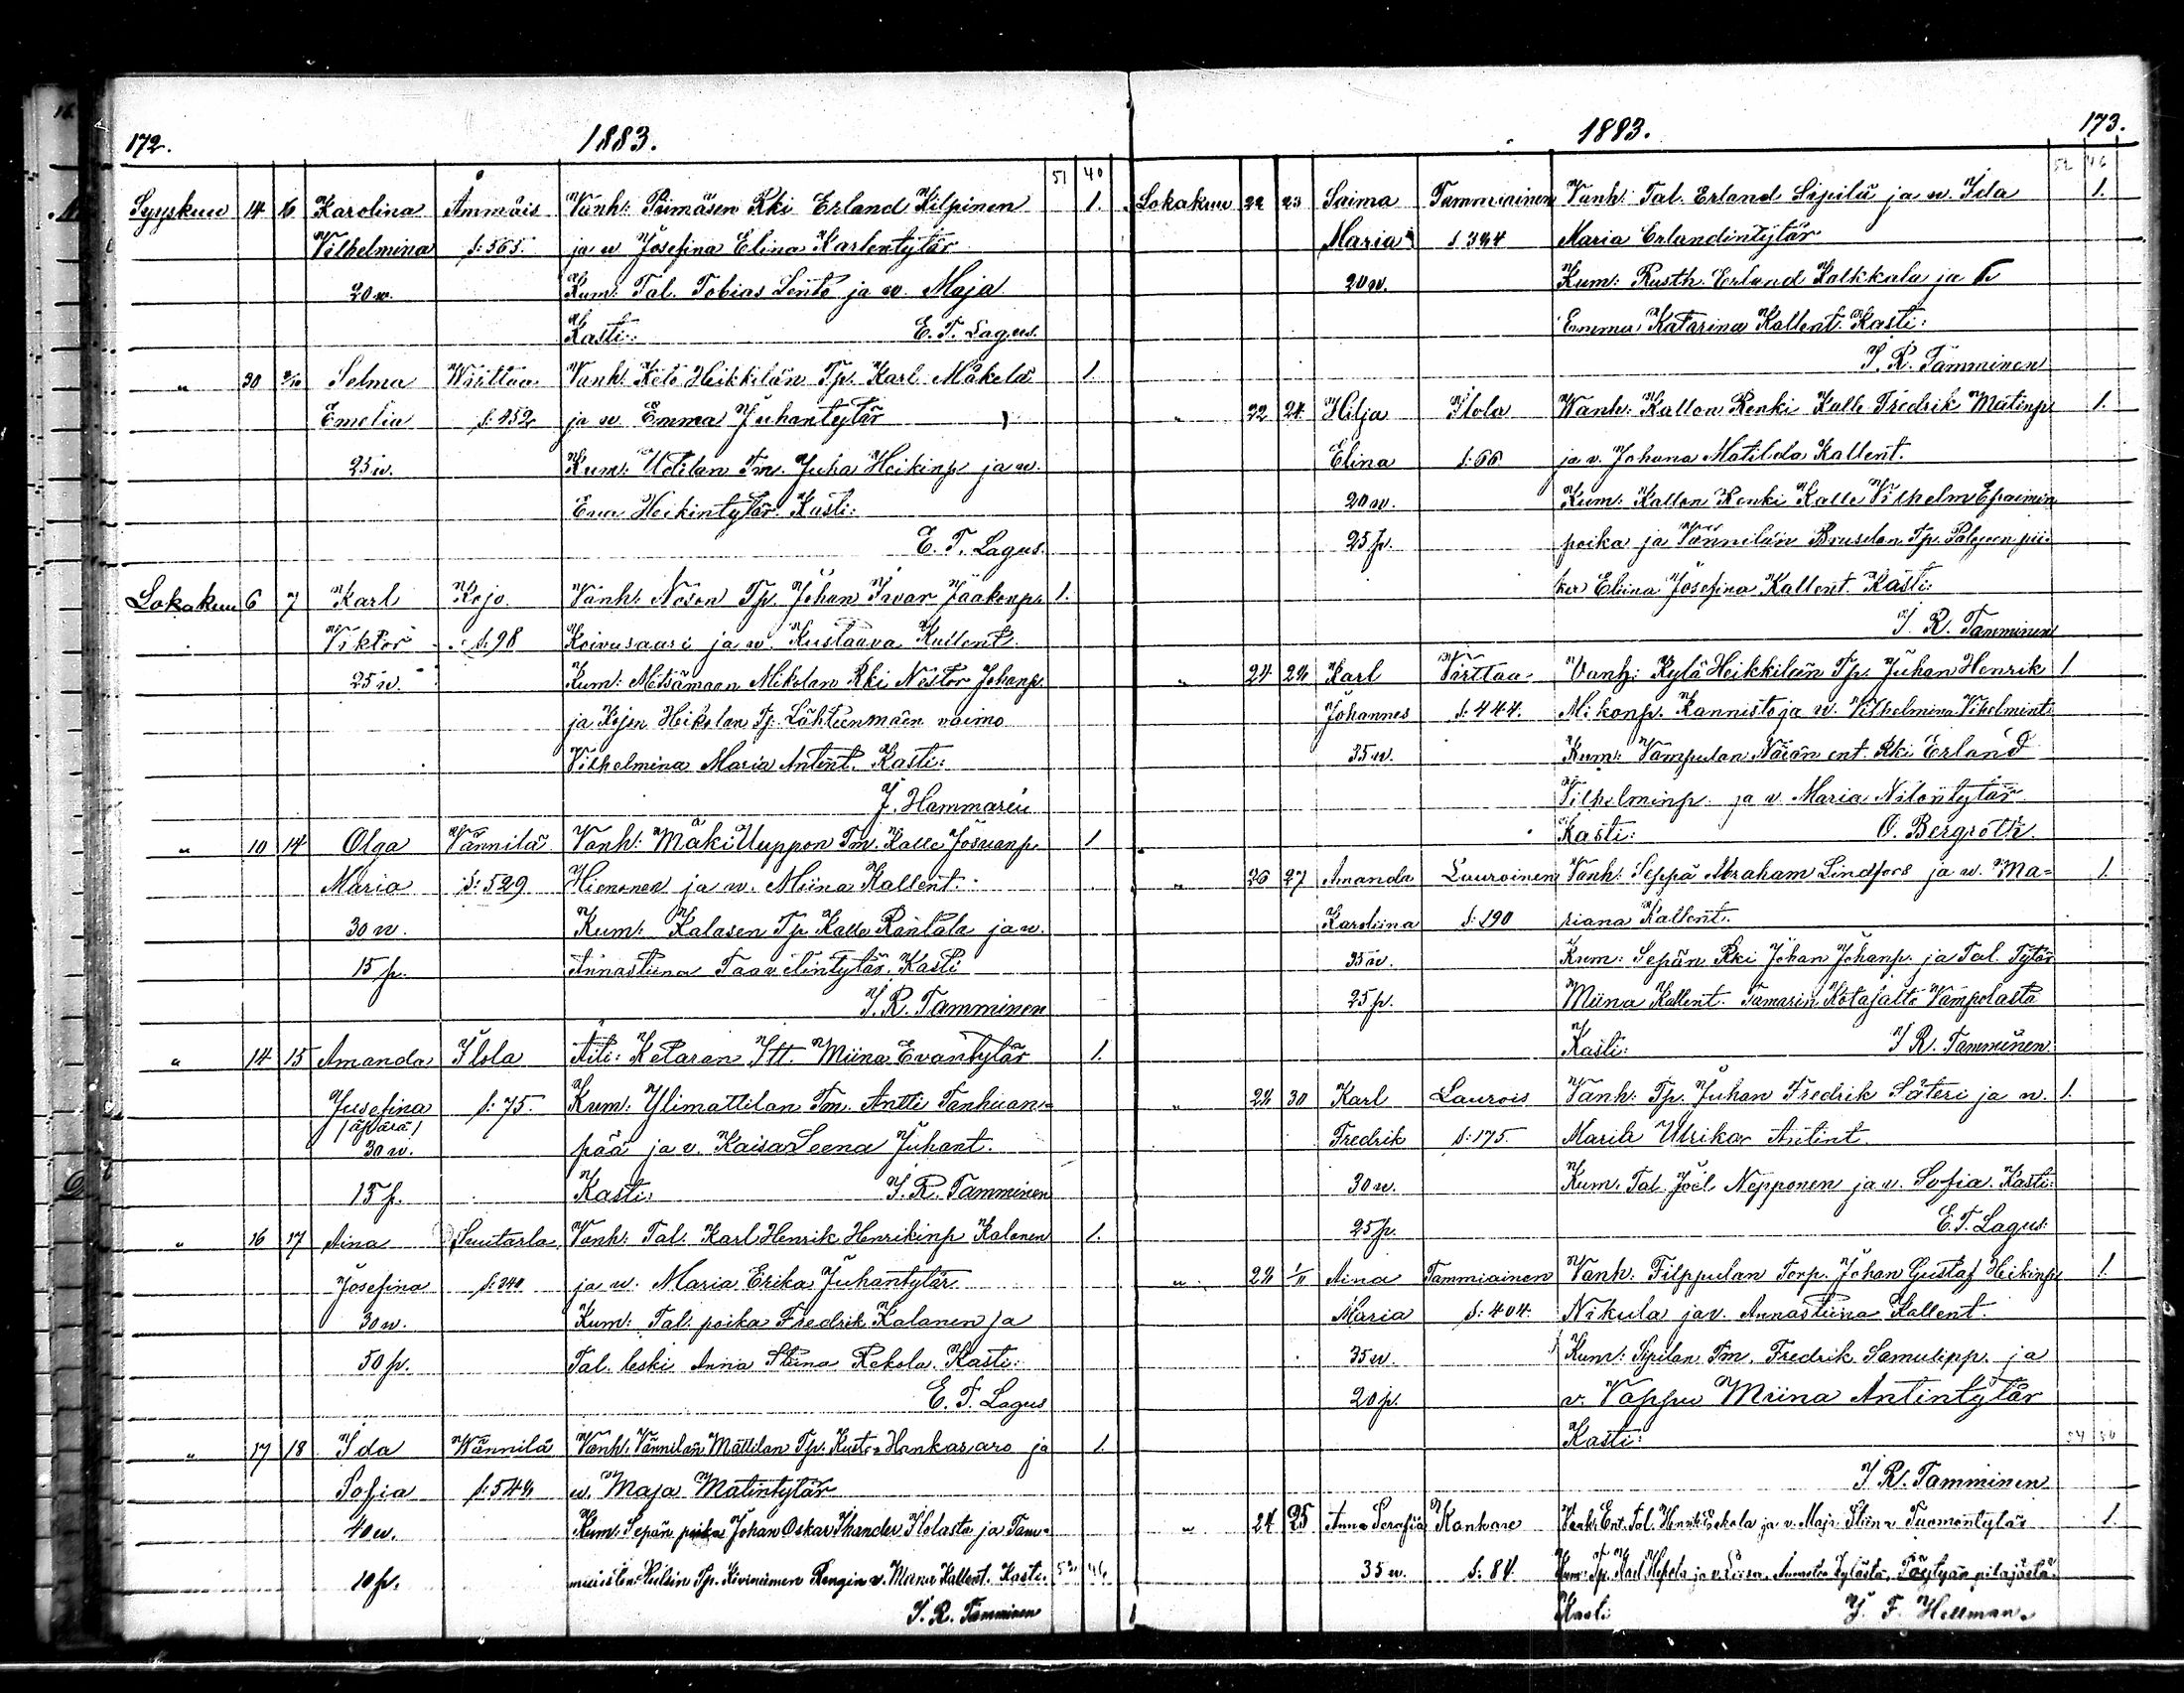 172.
1883.
51 40
Syyskuu 14 16 Karolina Ammäis Vanh: Poimäsen Rki Erland Kilpinen 1.
Vilhelmina S:565. ja w Josefina Elina Karlentytär
20 w. Kum: Tal. Tobias Sento ja w. Maja
Kasti: E. T. Lagus.
" 30 2/10 Selma Wirttaa Vanh: Kylö Heikkilän Tp. Karl Mäkelä 1.
Emelia S:452 ja w. Emma Juhantytär
25 w. Kum: Uotilan Tm. Juha Heikinp ja w.
Eva Heikintytär. Kasti:
E. T. Lagus.
Lokakuu 6 7 Karl Kojo Vanh: Noson Tp. Johan Iivar Jaakonp. 1.
Viktor S:98 Koivusaari ja w. Kustaava Kallent.
25 w. Kum: Metsämaan Mikolan Rki Nestor Johanp.
ja Kojon Heikolan Tp. Lähteenmäen vaimo
Vilhelmina Maria Antint. Kasti:
J. Hammarén
" 10 14 Olga Vännilä Vanh: Mäki Uuppon Tm. Kalle Josuanp. 1
Maria S:529 Hienonen ja w. Miina Kallent.
30 w. Kum: Kalasen Tp Kalle Rantala ja w.
15 p. Annastiina Taavetintytär. Kasti
J. R. Tamminen
" 14 15 Amanda Ilola Äiti: Ketaran Itt. Miina Evantytär 1.
Josefina S:75. Kum: Ylimattilan Tm. Antti Tanhuan-
/äpärä/
30 w. pää ja v. Kaisa Leena Juhant.
15 p. Kasti: J. R. Tamminen
" 16 17 Aina Suutarla Vanh: Tal. Karl Henrik Henrikinp Kalanen 1.
Josefina S:240 ja w. Maria Erika Juhantytär
30 w. Kum: Tal. poika Fredrik Kalanen ja
50 p. Tal. leski Anna Stiina Rekola. Kasti:
E. T. Lagus
" 17 18 Ida Wännilä Vanh: Vännilän Mattilan Tp. Kusta Honkasaro ja 1.
Sofia S:544 w. Maja Matintytär
40 w. Kum. Sepän poika Johan Oskar Ilolasta ja Tam-
10 p. Tp. Kiviniemen Rengin v. Miina Kallent. Kasti. 52 46
J. R. Tamminen
1883.
173.
52 46
Lokakuu 22 23 Saima Tammiainen Vanh: Tal. Erland Sipilä ja w. Ida 1.
Maria S.394 Maria Erlandintytär
20 w. Kum: Rusth. Erland Kolkkala ja
Emma Katarina Kallent. Kasti:
J. R. Tamminen
" 22 24 Hilja Ilola Wanh: Kallon Renki Kalle Fredrik Matinp. 1.
Elina S:66 ja v. Johana Matilda Kallent.
20 w. Kum: Kallon Renki Kalle Vilhelm Epraimin
25 p. poika ja Vännilän Tp. Palyeen pii-
ka Eliina Josefina Kallent. Kasti:
J. R. Tamminen
" 24 24 Karl Virttaa Vanh: Kylä Heikkilän Tp. Juhan Henrik 1
Johannes S:444. Mikonp. Kannisto ja w. Vilhelmina Vihelmint.
35 w. Kum: Vampulan ent. Rki Erland
Vilhelminp. ja v. Maria Nilontytär
Kasti: O. Bergroth.
" 26 27 Amanda Lauroinen Vanh: Seppä Abraham Lindfors ja w. Ma= 1.
Karoliina S:190 riana Kallent.
35 w. Kum: Sepän Rki Johan Johanp. ja Tal. Tytär
25 p. Miina Kallent. Kotajalto Vampulasta
Kasti: J R. Tamminen.
" 24 30 Karl Laurois Vanh: Tp. Juhan Fredrik Säteri ja w. 1.
Fredrik S:175. Maria Ulrika Antint.
30 w. Kum. Tal. Joel Nepponen ja v. Sofia. Kasti:
25 p. E. T. Lagus.
" 24 1/11 Aina Tammiainen Vanh: Filppulan Torp. Johan Gustaf Heikinp. 1.
Maria S:404. Nikula ja v. Annastiina Kallent.
35 w Kum: Sipilan Tm. Fredrik Samulinp. ja
20 p. v. Vappu Miina Antintytär
Kasti: 54 50
J R. Tamminen
" 24 25 Anna Serafia Kankare Vanh. Ent. Tal. Henrik Eskola ja v. Maja Stiina Tuomontytär 1.
35 w. S:84. Kum: Tp. Karl Hepola ja v. Loisa, kylästä, Pöytyän pitäjästä.
Kasti J. F. Hellman.